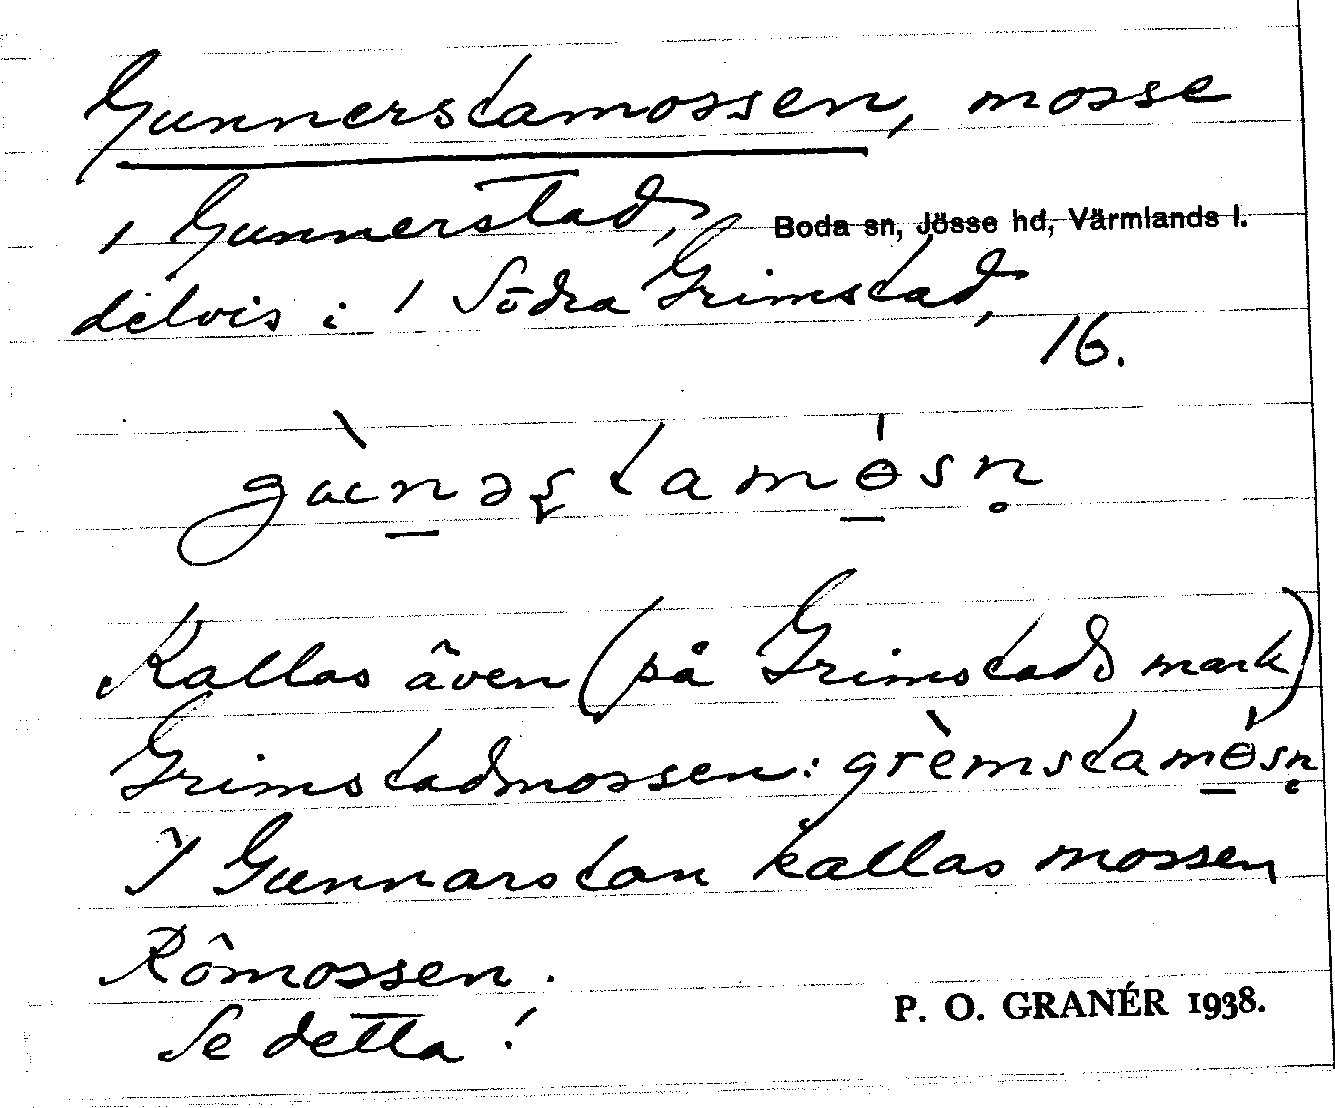 Gunnerstamossen, mosse
1 Gunnerstad, Boda sn, Jösse hd, Värmlands l.
delvis i 1 Södra Grimstad,
16.
gùn̲əʂtamɵ̲́sn̥
Kallas även (på Grimstads mark)
Grimstadmossen: grèmstamɵ̲́sn̥
I Gunnarstan kallas mossen
Römossen.
Se detta!
P. O. GRANÉR 1938.